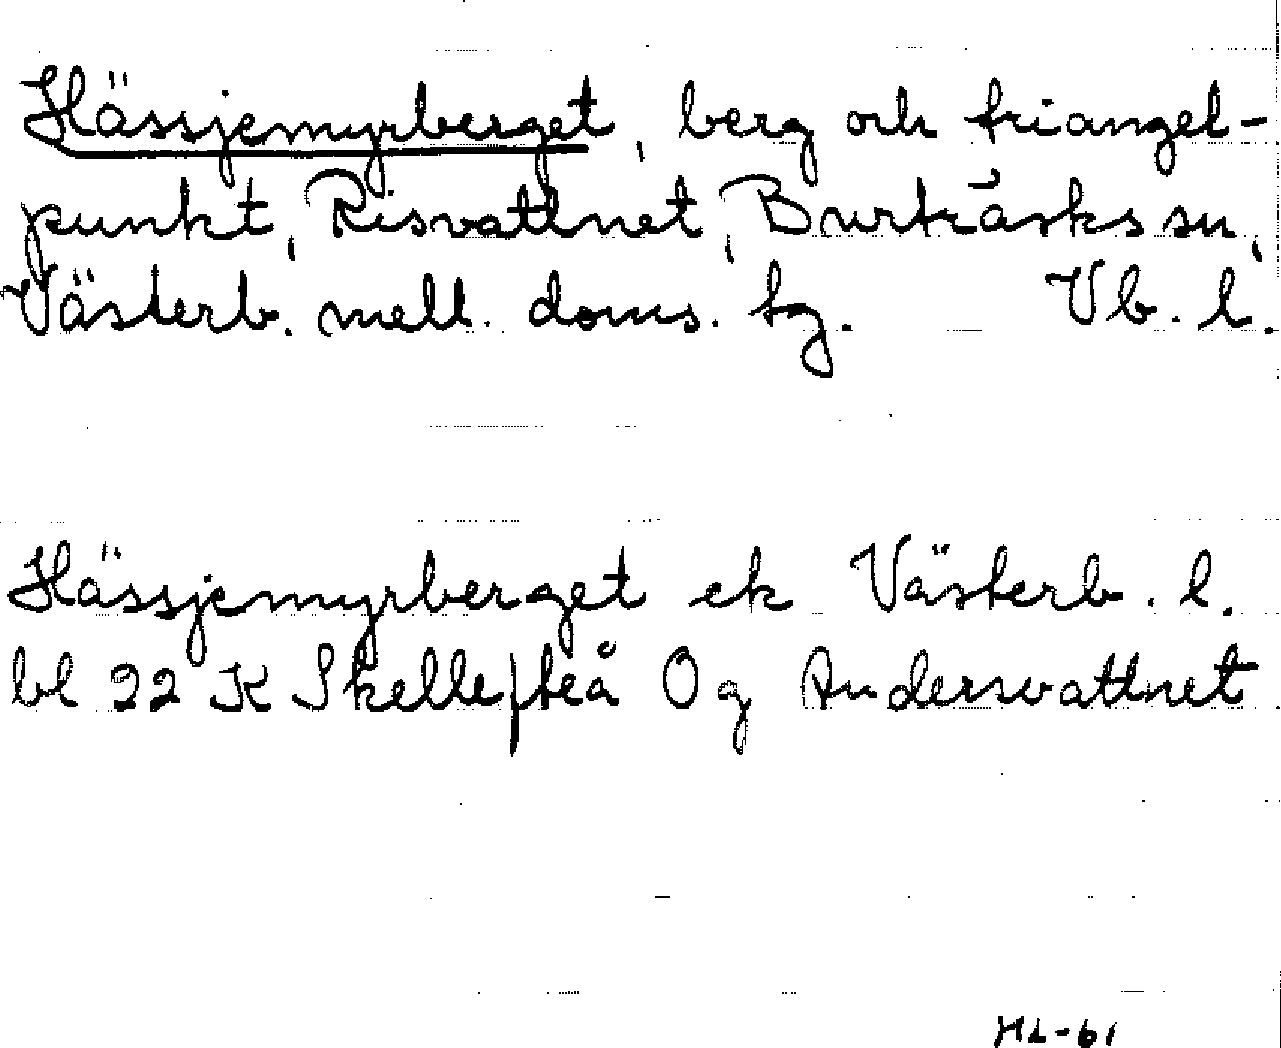 Hässjemyrberget, berg och triangel-
punkt, Risvattnet, Burträsks sn,
Västerb. mell. doms. tg. Vb. l.
Hässjemyrberget ek Västerb. l.
bl 22 K Skellefteå O g Andersvattnet
HL-61